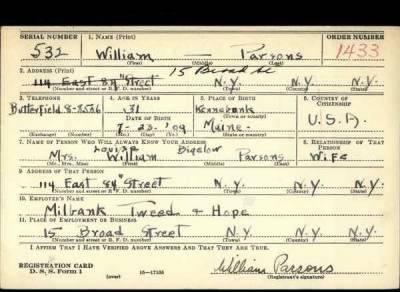 SERIAL NUMBER 1. NAME (Print) ORDER NUMBER
532 William — Parsons 1433
(First) (Middle) (Last)
2. ADDRESS (Print) 15 Broad St
114 East 84 Street N.Y. N.Y. N.Y.
(Number and street or R. F. D. number) (Town) (County) (State)
3. TELEPHONE 4. AGE IN YEARS 5. PLACE OF BIRTH 6. COUNTRY OF CITIZENSHIP
Butterfield 8-8506 31 Kennebunk
DATE OF BIRTH (Town or county) U.S.A.
7-23-'09 Maine
(Exchange) (Number) (Mo.) (Day) (Yr.) (State or country)
7. NAME OF PERSON WHO WILL ALWAYS KNOW YOUR ADDRESS 8. RELATIONSHIP OF THAT PERSON
Louise Bigelow
Mrs. William Parsons Wife
(Mr., Mrs., Miss) (First) (Middle) (Last)
9. ADDRESS OF THAT PERSON
114 East 84 Street N.Y. N.Y. N.Y.
(Number and street or R. F. D. number) (Town) (County) (State)
10. EMPLOYER'S NAME
Milbank Tweed & Hope
11. PLACE OF EMPLOYMENT OR BUSINESS
15 Broad Street N.Y. N.Y. N.Y.
(Number and street or R. F. D. number) (Town) (County) (State)
I AFFIRM THAT I HAVE VERIFIED ABOVE ANSWERS AND THAT THEY ARE TRUE.
REGISTRATION CARD
D. S. S. Form 1 (over) 16—17105 William Parsons
(Registrant's signature)